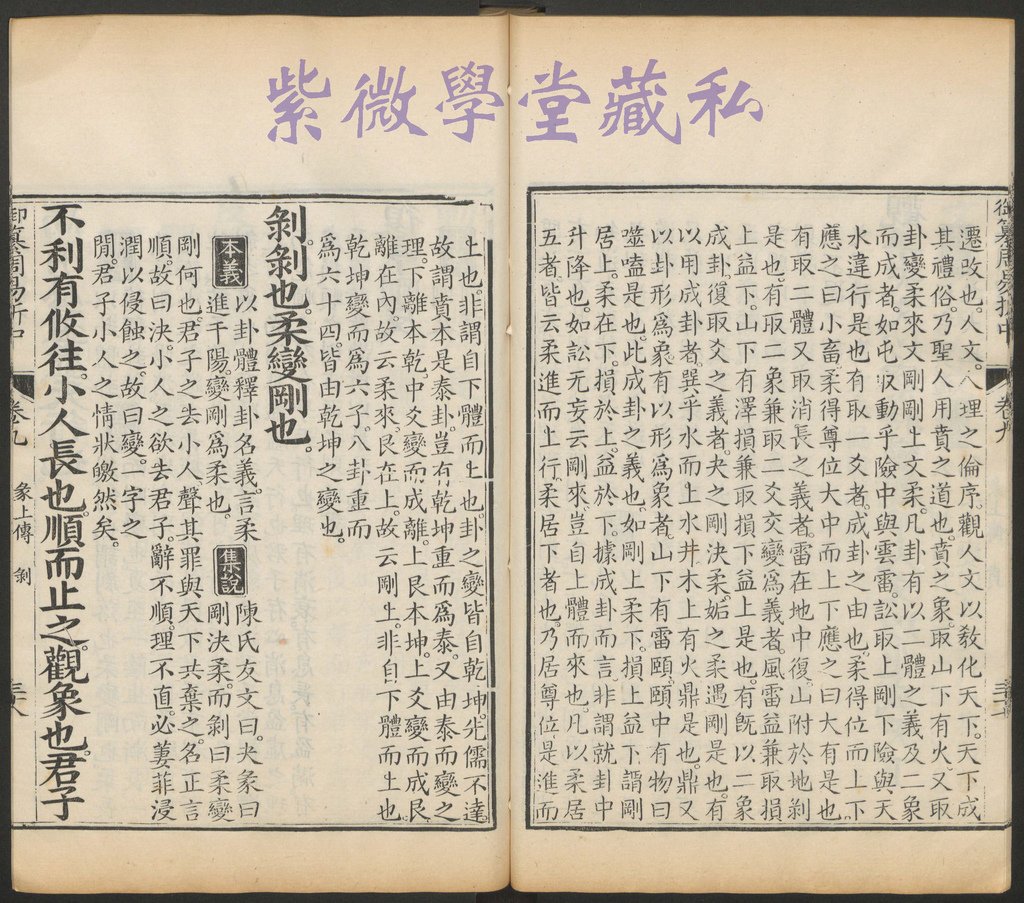 紫微學堂藏私
御纂周易折中
卷九
遷改也。人文。人理之倫序。觀人文以敎化天下。天下成
其禮俗。乃聖人用賁之道也。賁之象。取山下有火。又取
卦變。柔來文剛。剛上文柔。凡卦有以二體之義及二象
而成者。如屯取動乎險中與雲雷。訟取上剛下險與天
水違行是也。有取一爻者。成卦之由也。柔得位而上下
應之。曰小畜。柔得尊位大中而上下應之。曰大有是也。
有取二體又取消長之義者。雷在地中復。山附於地剝
是也。有取二象兼取二爻交變爲義者。風雷益兼取損
上益下。山下有澤損兼取損下益上是也。有旣以二象
成卦。復取爻之義者。夬之剛決柔。姤之柔遇剛是也。有
以用成卦者。巽乎水而上水井。木上有火鼎是也。鼎又
以卦形爲象。有以形爲象者。山下有雷頤。頤中有物曰
噬嗑是也。此成卦之義也。如剛上柔下。損上益下。謂剛
居上。柔在下。損於上。益於下。據成卦而言。非謂就卦中
升降也。如訟无妄云剛來。豈自上體而來也。凡以柔居
五者。皆云柔進而上行。柔居下者也。乃居尊位。是進而
上也。非謂自下體而上也。卦之變皆自乾坤。先儒不達。
故謂賁本是泰卦。豈有乾坤重而爲泰。又由泰而變之
理。下離本乾。中爻變而成離。上艮本坤。上爻變而成艮
離在內。故云柔來。艮在上。故云剛上。非自下體而上也
乾坤變而爲六子。八卦重而
爲六十四。皆由乾坤之變也。
剝。剝也。柔變剛也。
本義 以卦體釋卦名義。言柔
進干陽。變剛爲柔也。
集說 陳氏友文曰。夬彖曰
剛決柔。而剝曰柔變
剛何也。君子之去小人。聲其罪與天下共棄之。名正言
順。故曰決。小人之欲去君子。辭不順。理不直。必萋菲浸
潤以侵蝕之。故曰變。一字之
閒。君子小人之情狀皦然矣。
不利有攸往。小人長也。順而止之。觀象也。君子
御纂周易折中
卷九
彖上傳 剝